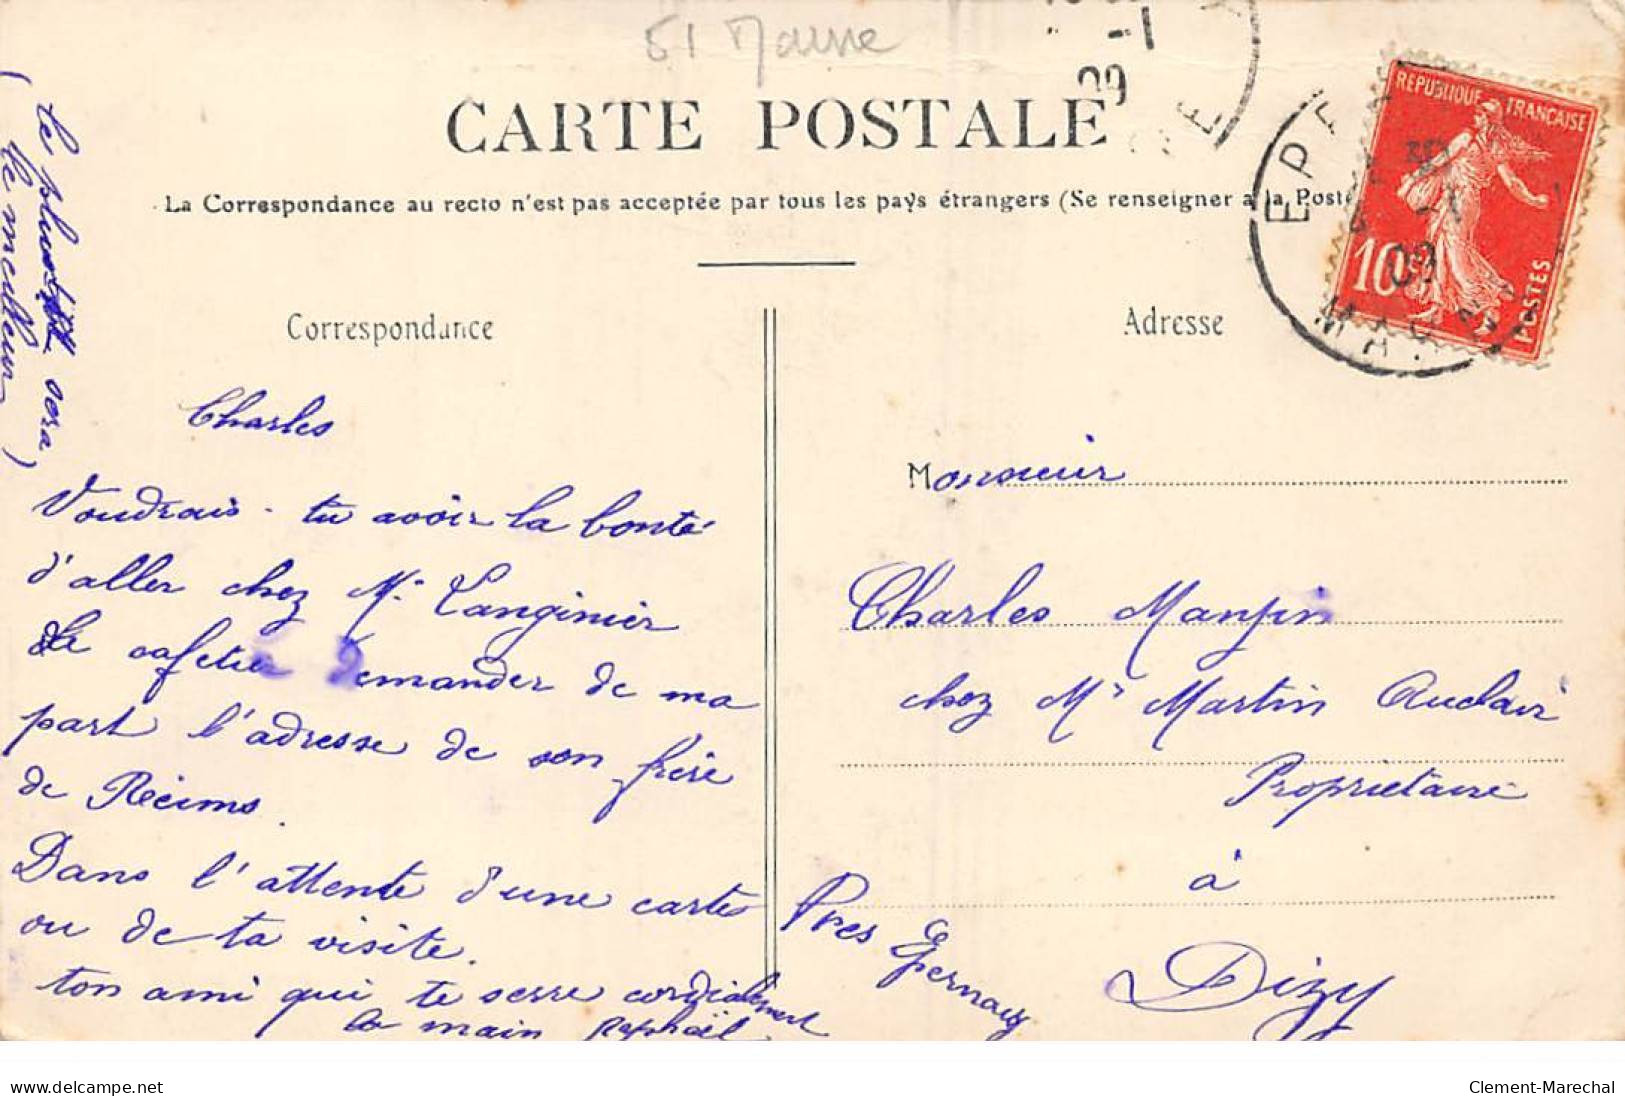 51 Marne
CARTE POSTALE
La Correspondance au recto n'est pas acceptée par tous les pays étrangers (Se renseigner a la Poste
Correspondance
Adresse
REPUBLIQUE FRANÇAISE
10
POSTES
EPERNAY
MARNE
5
-1
09
-1
09
(le plustôt sera
le meilleur)
Charles
Voudrais-tu avoir la bonté
d'aller chez Mr Langinier
le cafetier demander de ma
part l'adresse de son frère
de Reims.
Dans l'attente d'une carte
ou de ta visite.
ton ami qui te serre cordialement
la main Raphaël
Monsieur
Charles Manpin
chez Mr Martin Auclair
Propriétaire
à
Dizy
Pres Epernay
delcampe.net
Clement-Marechal